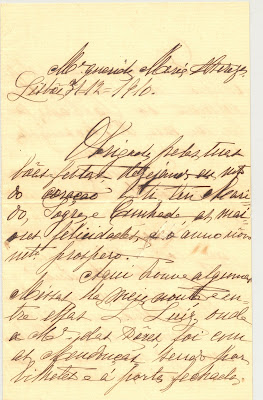 Mª querida Maria Thereza
Lisboa, 31-12-1910.
Obrigada pelas tuas
bôas festas desejando eu no
do coração a ti teu Mari-
do, Sogra e Cunhada, as mai-
ores felicidades e o anno
muito prospero.
Aqui houve algumas
Missas da meia noute en-
tre ellas S. Luiz, onde
a Mª das Dôres foi com
as Mendonças, sendo por
bilhetes e á porta fechada.